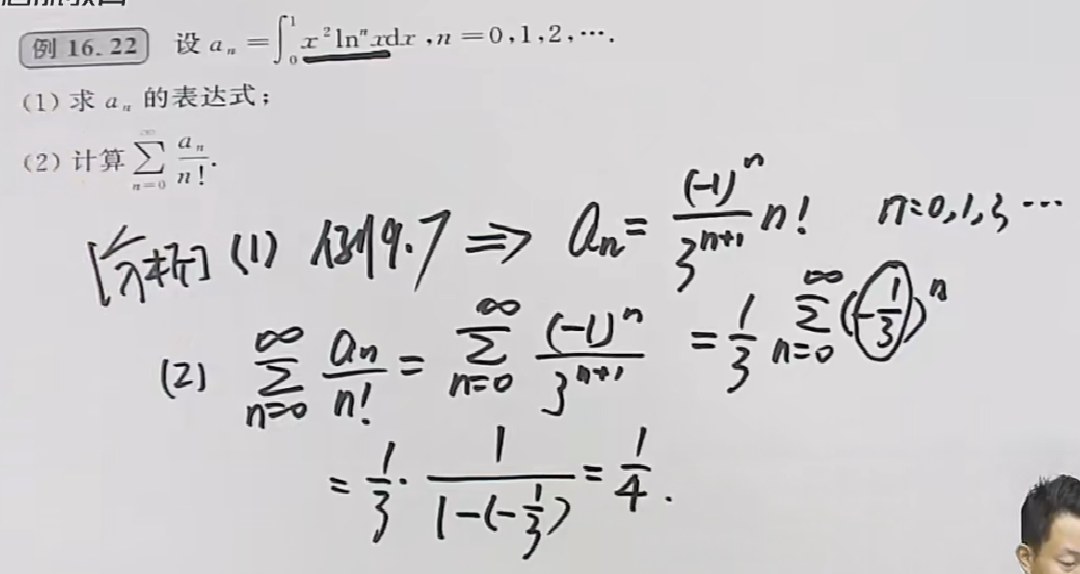 例 16.22 设 aₙ = ∫₀¹ x² lnⁿ x dx , n = 0,1,2,⋯.
(1) 求 aₙ 的表达式;
(2) 计算 ∑_{n=0}^{∞} aₙ/n!.
[分析] (1) 例9.7 ⇒ aₙ = (-1)ⁿ/3ⁿ⁺¹ n! n=0,1,3 ⋯
(2) ∑_{n=0}^{∞} aₙ/n! = ∑_{n=0}^{∞} (-1)ⁿ/3ⁿ⁺¹ = 1/3 ∑_{n=0}^{∞} (-1/3)ⁿ
= 1/3 · 1/(1-(-1/3)) = 1/4 .